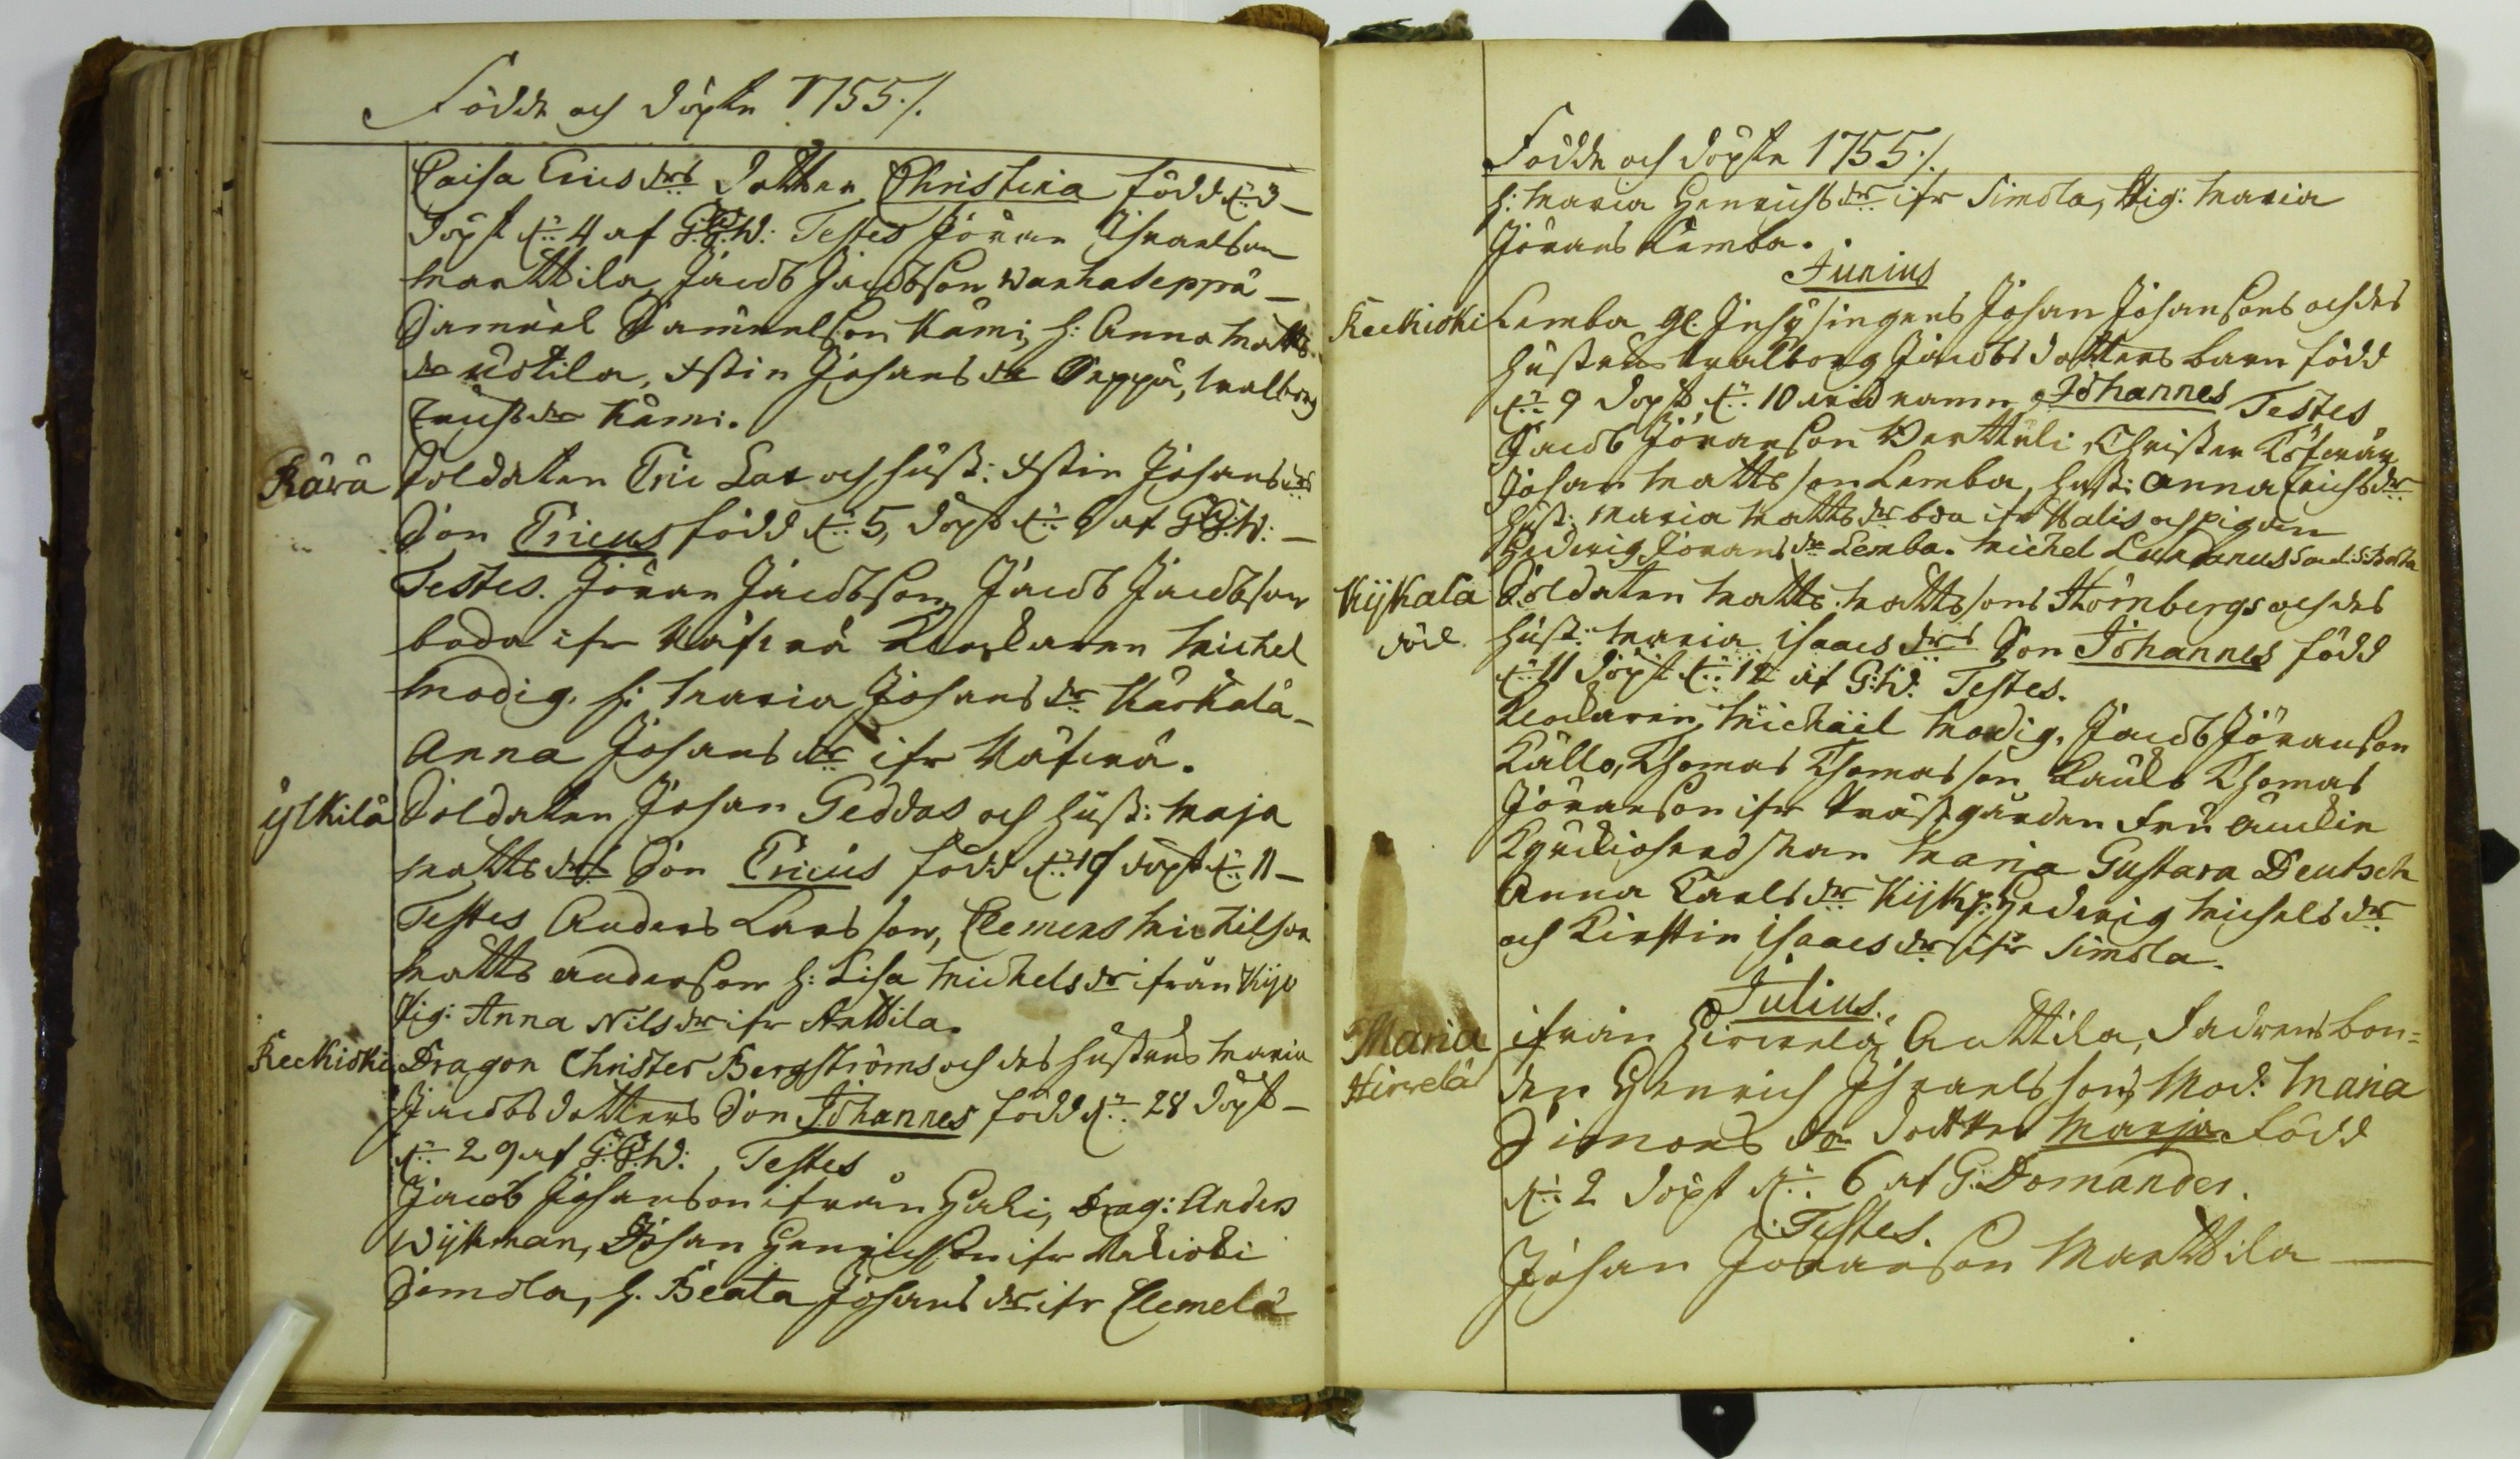 Födde och döpte 1755./.
Caisa Ericsdrs dotter Christina född d: 3 -
döpt d: 4 af G:W: Testes Jöran Israelson
Marttila, Jacob Jacobson Wanhaseppä -
Samuel Samuelson Kämi, h: Anna Matts
dr Uotila, Kstin Johans dr Seppä, Walborg
Erichsdr Kämi.
Rärä Soldaten Eric Lax och hust: Kstin Johansdrs
Son Ericus född d: 5, döpt d: 6 af G:W: -
Testes. Jöran Jacobson, Jacob Jacobson
boda ifr Michel
Modig. h: Maria Johansdr Kärkälä -
Anna Johansdr ifr
Ylkilä Soldaten Johan Geddas och hust: Maja
Mattsdrs Son Ericus född d: 10 döpt d: 11 -
Testes Anders Larsson, Clemens Michilson
Matts Anderson h: Lisa Michelsdr ifrån Kyl
Pig: Anna Nilsdr ifr Anttila.
Keckioki Dragon Christer Bergströms och des hustrus Maria
Jacobsdotters Son Johannes född d: 28 döpt -
d: 29 af G:W: , Testes
Jacob Johanson ifrån Hali, Drag: Anders
Wijkman, Johan Henrichson ifr
Simola, h. Beata Johansdr ifr Clemelä
Födde och döpte 1755./.
h: Maria Henrichsdr ifr Simola, Pig: Maria
Jörans Lemba.
Junius
Keckioki Lemba gl. Inhysingens Johan Johansons och des
hustrus Walborg Jacobsdotters barn född
d: 9 döpt d: 10 wid namn Johannes Testes
Jacob Jöranson Werttuli, Christer
Johan Mattsson Lemba, hust: Anna Erichsdr
hust: Maria Mattsdr boa ifr Halis och pigan
Hedevig Jöransdr Lemba. Michel
Kijkala Soldaten Matts Mattssons Störnbergs och des
död hust: Maria Isaacsdrs Son Johannes född
d: 11 döpt d: 12 af G:W: Testes.
Klockaren Michaël Modig, Jacob Jöranson
Källo, Thomas Thomasson Thomas
Jöranson ifr Prästgården Fru
Maria Gustava Deutsch
Anna Carlsdr Kijkp: Hedevig Michelsdr
och Kirstin Isaacsdr ifr Simola.
Julius.
Maria ifrån Hirvelä Anttila, Fadren bon=
Hirvelä den Henrich Israelsson, Mod: Maria
Simons dr dotter Marja född
d: 2 döpt d: 6 af G: Domander.
Testes.
Johan Jöranson Marttila